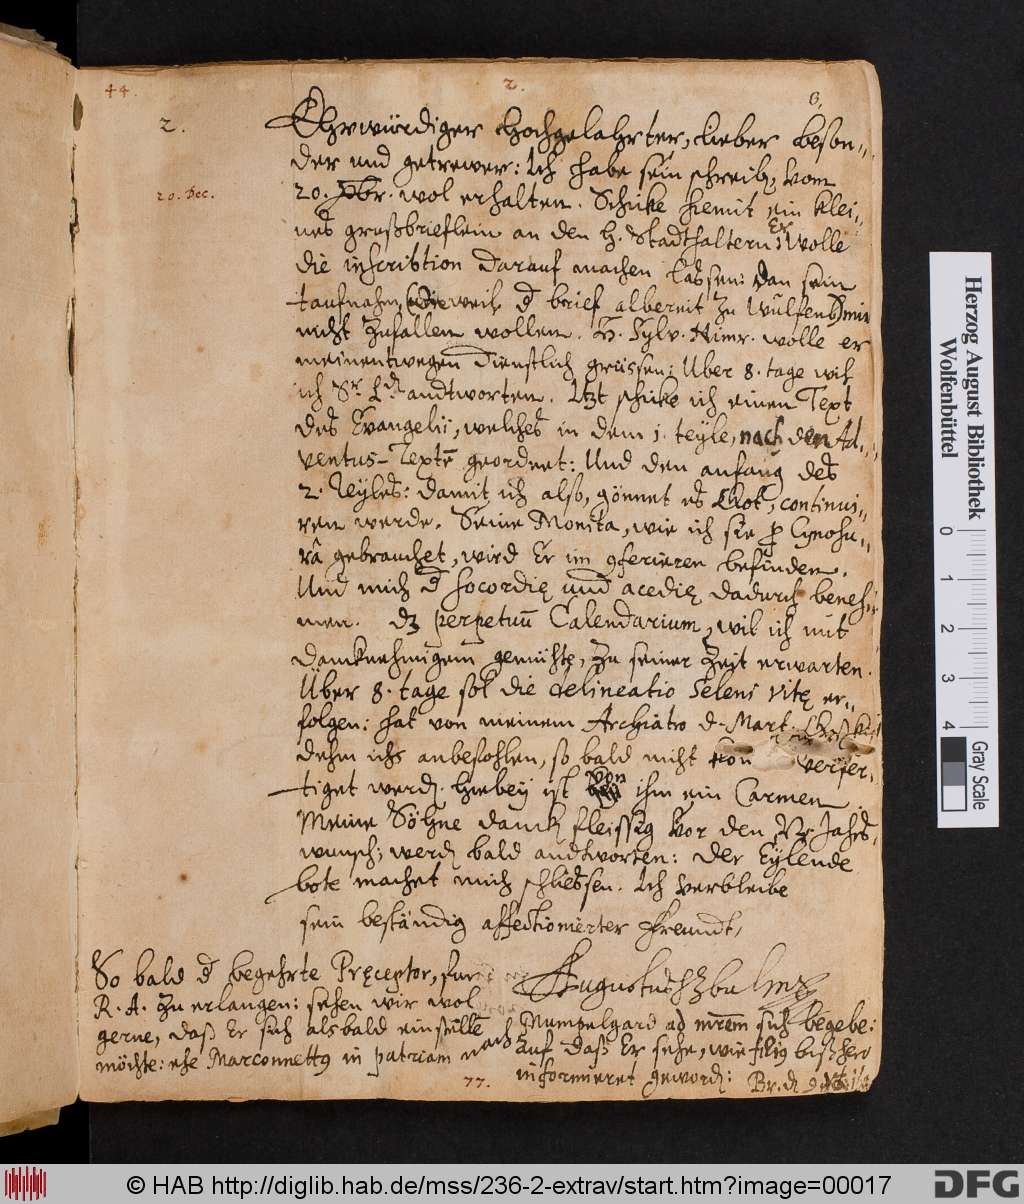 44.
2.
6.
2.
Ehrwürdiger Hochgelahrter, Lieber beson-
der und getrewer: Ich habe sein schreib. vom
20. Dec.
20. Xbr. wol erhalten. Schicke hiemit ein klei-
nes großbrieflein an den H. Stadthaltern; Er wolle
die inscribtion darauf machen lassen: dan sein
taufnahm, dieweil d brief albereit zu Wulfenb.
nicht zufallen wollen. H. Sylv. Himr. wolle er
meinentwegen dienstlich grüssen: Über 8. tage wil
ich Sr. Ld. andtworten. Itzt schicke ich einen Text
des Evangelii, welches in dem 1. teyle, nach den Ad-
ventus-Texte geordnet: Und den anfang des
2. Teyles: damit ich also, gönnet es Got, continui-
ren werde. Seine Monita, wie ich sie p Cynosu-
râ gebrauchet, wird Er im gferieren befinden.
Und mich d socordię und acedię dadurch beneh-
men. dz perpetuū Calendarium, wil ich mit
dancknehmigem gemühte, zu seiner Zeit erwarten.
Über 8. tage sol die delineatio Seleni vitę er-
folgen: hat von meinem Archiatro d. Mart.
dehm ichs anbefohlen, so bald nicht kon verfer-
tiget werd. Hiebey ist von ihm ein Carmen
Meine Söhne danck fleissig vor den N. Jahrs-
wunsch; werd bald andtworten: Der Eylende
bote machet mich schliessen. Ich verbleibe
sein beständig affectionierter Freundt,
Augustus HzbuLmpp
So bald d begehrte Pręceptor, fur
R. A. zu erlangen: sehen wir wol
gerne, daß Er sich alsbald einstelle
möchte: ehe Marconnettę in patriam nach
Mumpelgard ad mrem sich begebe:
Auf daß Er sehe, wie bißhero
informieret geword:
77.
Herzog August Bibliothek
Wolfenbüttel
0 1 2 3 4
Gray Scale
© HAB http://diglib.hab.de/mss/236-2-extrav/start.htm?image=00017
DFG